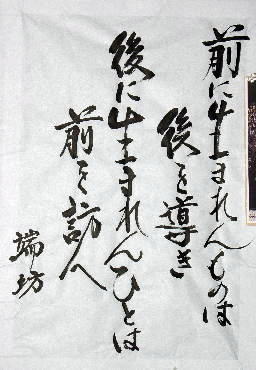 前に生まれんものは
後を導き
後に生まれんひとは
前を訪へ
端坊